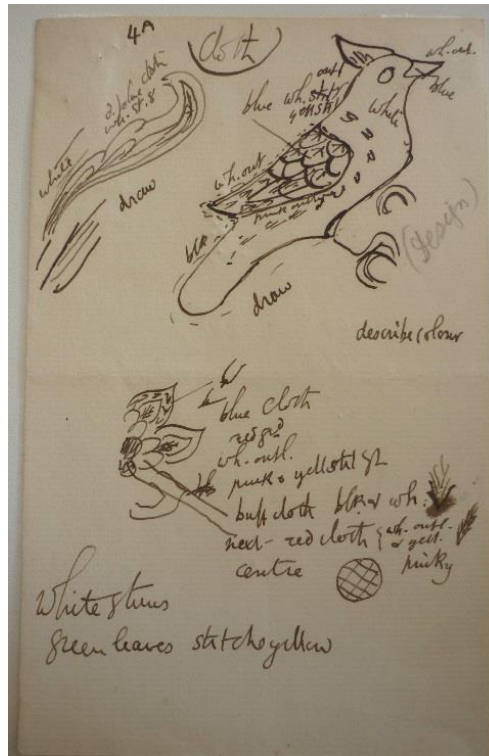 4A
cloth
wh. out.
blue
2 blue cloth
wh. st. 8
white
draw
outl
blue wh. st
yell st
white
wh. out
pink
blk
draw
(design)
describe colour
blue cloth
red gd
wh. outl.
pink & yell stitch
buff cloth blk or wh.
next - red cloth { wh. outl.
or yell.
centre
pinky
white stems
green leaves stitch yellow